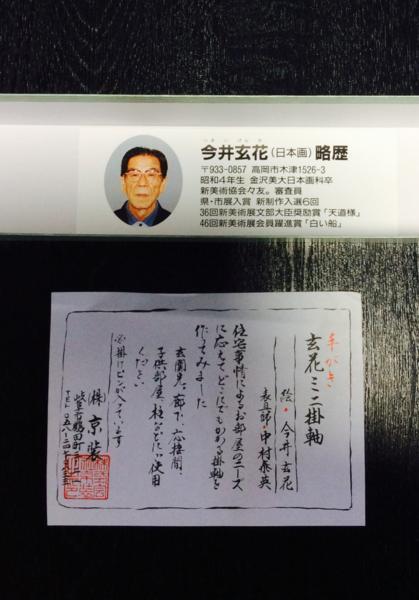 今井玄花(日本画)略歴
〒933-0857 高岡市木津1526-3
昭和4年生 金沢美大日本画科卒
新美術協会々友。審査員
県・市展入賞 新制作入選6回
36回新美術展文部大臣奨励賞「天道様」
46回新美術展会員躍進賞「白い船」
手がき
玄花ミニ掛軸
絵・今井玄花
表具師・中村飛英
住宅事情によるお部屋のニーズ
に応えて、どこにでもかかる掛軸を
作ってみました
玄関先、廊下、応接間、
子供部屋、柱などに、ご使用
ください
必掛けピンが入っています
(株)京装
岐阜市鶴田町